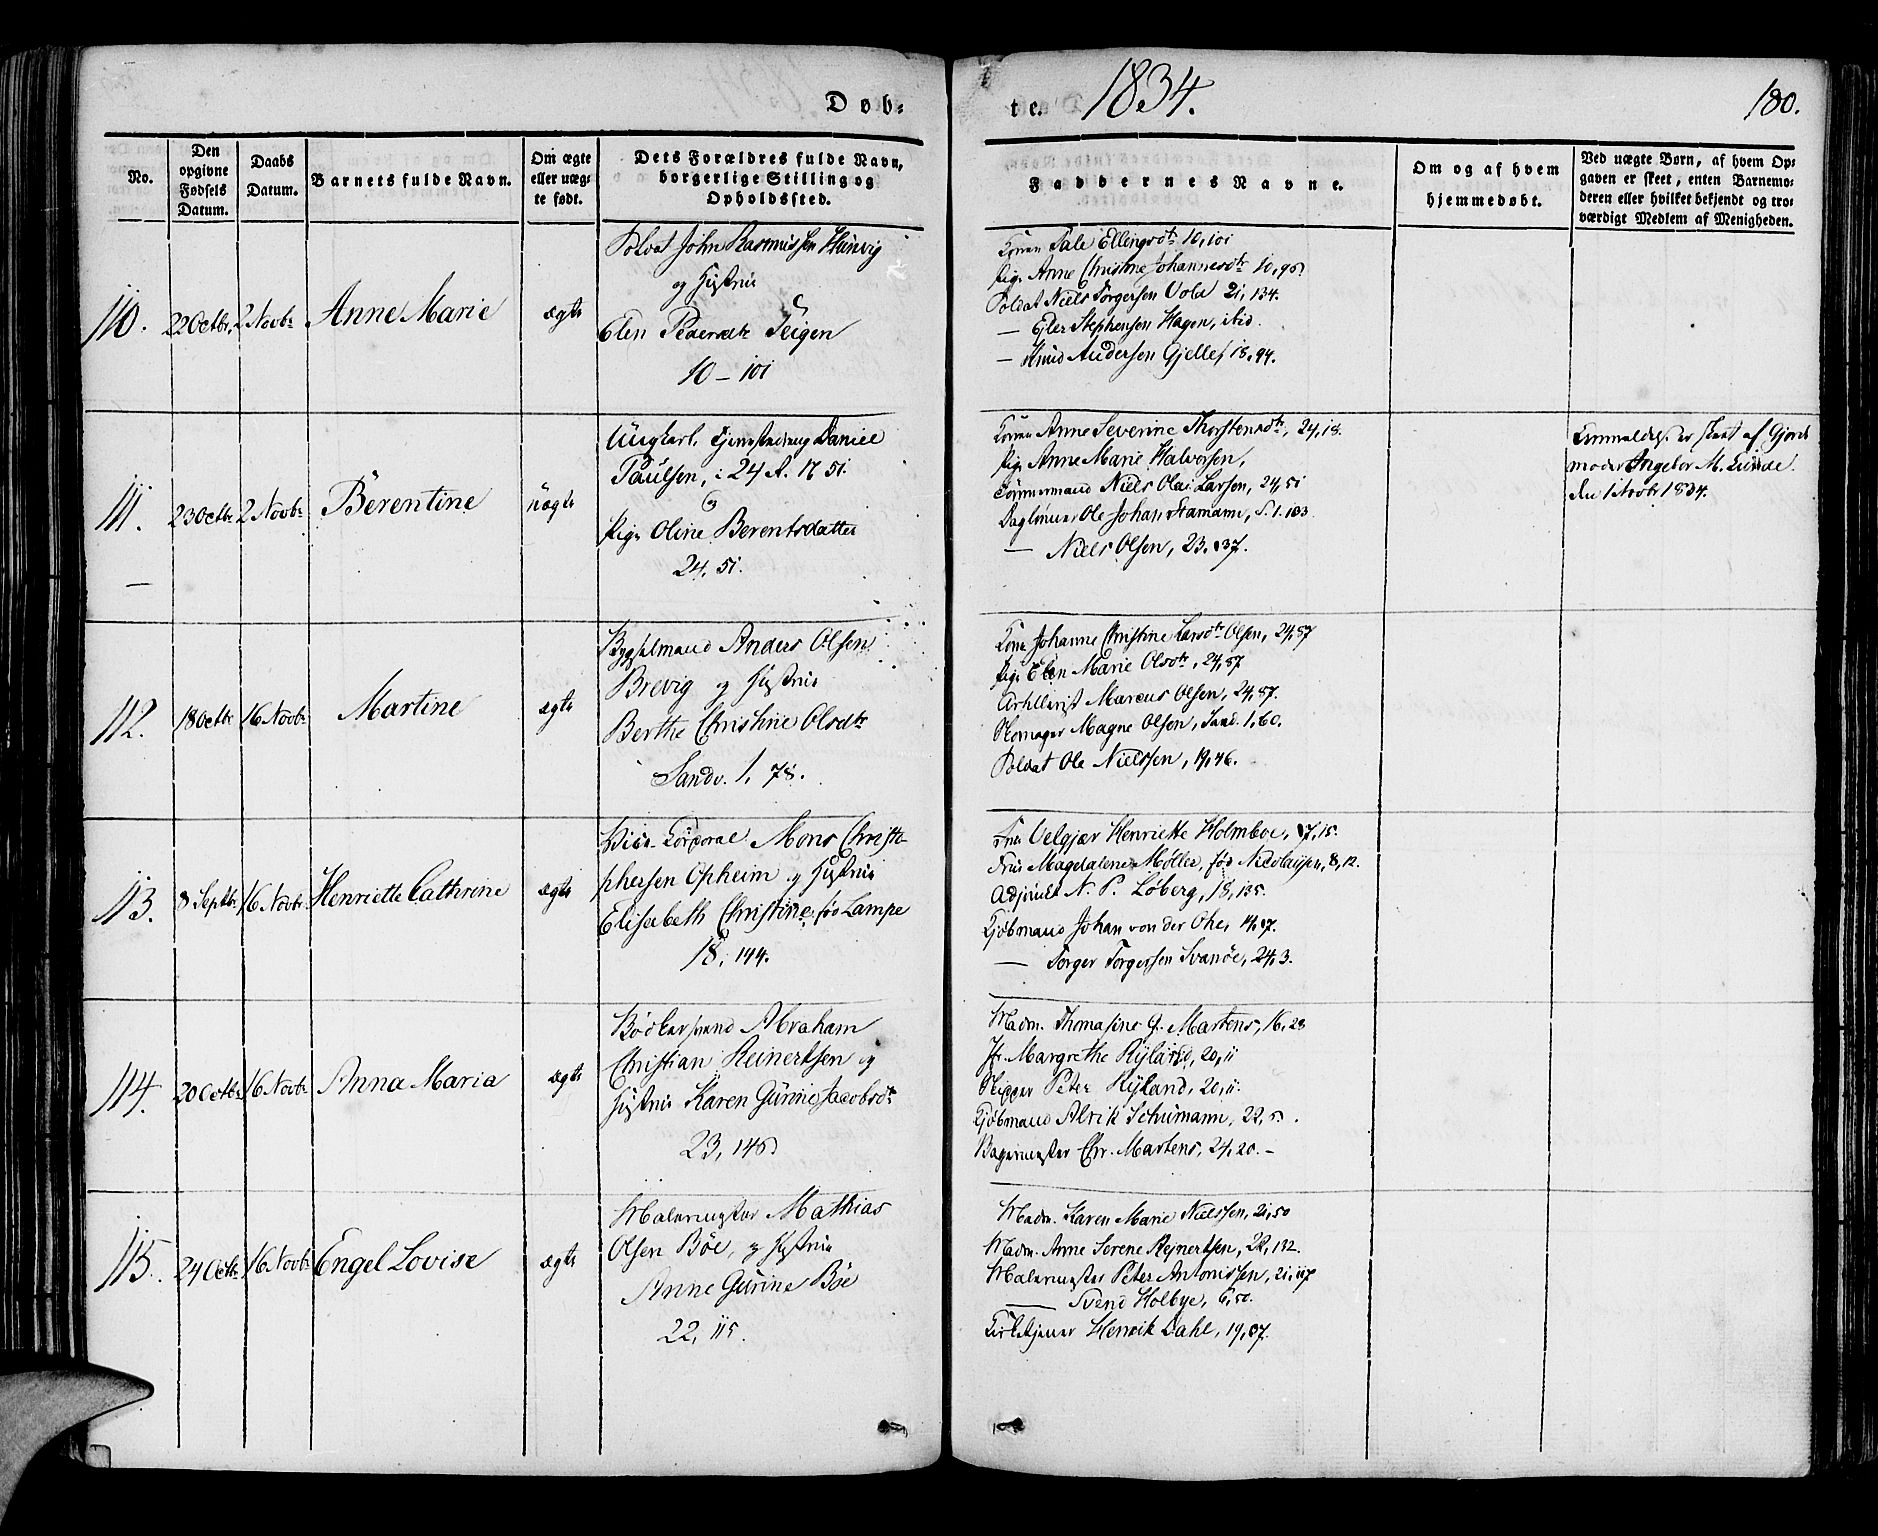 Døb-
te. 1834.
180.
No.
Den opgivne Fødsels Datum.
Daabs Datum.
Barnets fulde Navn.
Om ægte eller uægte født.
Dets Forældres fulde Navn, borgerlige Stilling og Opholdssted.
Faddernes Navne.
Om og af hvem hjemmedøbt.
Ved uægte Børn, af hvem Opgaven er skeet, enten Barnemoderen eller hvilket bekjendt og troværdigt Medlem af Menigheden.
110. 22 Octbr. 2 Novbr Anne Marie ægte
Soldat John Rasmussen
og Hustrue
Elen Pedersdtr Teigen
10 – 101
Konen Pale Ellingsdtr 10, 101
Pige Anne Christine Johannesdtr 10, 95
Soldat Niels Torgersen Vold 21, 134.
— Eiler Stephensen Hagen, ibid.
— Knud Andersen Gjelle, 18, 94.
111. 23 Octbr 2 Novbr Berentine uægte
Ungkarl, Tjenestedreng Daniel
Paulsen, i 24 R. N 51
og
Pige Oline Berentsdatter
24, 51.
Konen Anne Severine Thorstensdtr, 24, 18.
Pige Anne Marie Halvorsen,
Tømmermand Niels Olai Larsen, 24, 51
Daglønner Ole Johan Stamann, S. 1. 103
— Niels Olsen, 23, 137.
Anmeldelse er skeet af Gjord
moder Ingebor M. Lunde.
den 1 Novbr 1834.
112. 18 Octbr 16 Novbr Martine ægte
Bygselmand Anders Olsen
Brevig og Hustrue
Berthe Christine Olsdtr
Sandv. 1, 78.
Kone Johanne Christine Larsdtr Olsen, 24, 57
Pige Elen Marie Olsdtr, 24, 57
Artillerist Marcus Olsen, 24, 57.
Skomager Magne Olsen, Sand. 1, 60.
Soldat Ole Nielssen, 19, 46.
113. 8 Septbr 16 Novbr Henriette Cathrine ægte
Vice-Corporal Mons Christo-
phersen Opheim og Hustrue
Elisabeth Christine, fød Lampe
18, 144.
Frue Velgjær Henriette Holmboe, 17, 15.
Frue Magdalene Møller, fød Nicolaysen, 8, 12.
Adjunct N. P. Løberg, 18, 135.
Kjøbmand Johan von der Ohe, 14, 17.
— Torger Torgersen Svanøe, 24, 3.
114. 20 Octbr 16 Novbr Anna Maria ægte
Bødkersvend Abraham
Christian Reinertsen og
Hustrue Karen Gurine Jacobsdtr
23, 145
Madm. Thomasine G. Martens, 16, 23
Jfr. Margrethe Ryland, 20, 11
Skipper Peter Ryland, 20, 11.
Kjøbmand Alrik Schumann, 22, 5.
Bagermester Chr. Martens, 24, 20. –
115. 24 Octbr 16 Novbr Engel Lovise ægte
Malermester Mathias
Olsen Böe, og Hustrue
Anne Gurine Böe
22, 115.
Madm. Karen Marie Nielssen, 21, 50
Madm. Anne Serene Reinertsen, 22, 132.
Malermester Peter Antonissen, 21, 117
— Svend Holbye, 6, 50.
Kirketjener Henrik Dahl, 19, 37.